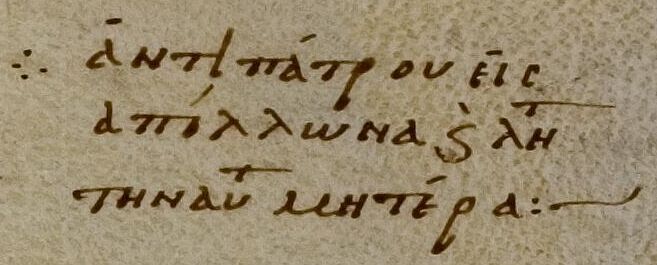 ∴ ἀντιπάτρου εἰς
ἀπόλλωνα ϗ λητ
την αυτ μητέρα:—